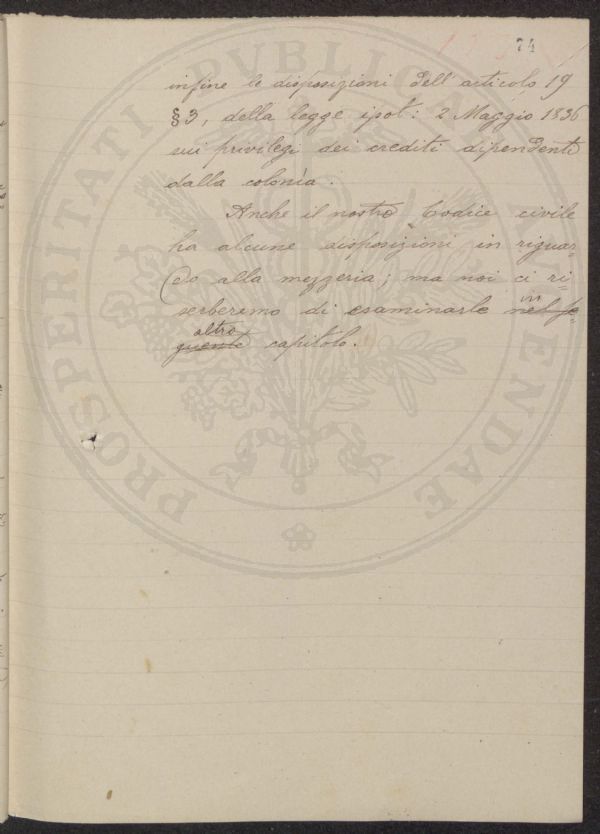 74
infine le disposizioni dell'articolo 19
§ 3, della legge ipot: 2 Maggio 1836
sui privilegi dei crediti dipendenti
dalla colonìa.
Anche il nostro Codice civile
ha alcune disposizioni in riguar-
do alla mezzeria; ma noi ci ri-
serberemo di esaminarle nel se- in
guente altro capitolo.
PROSPERITATI PVBLICAE AVGENDAE